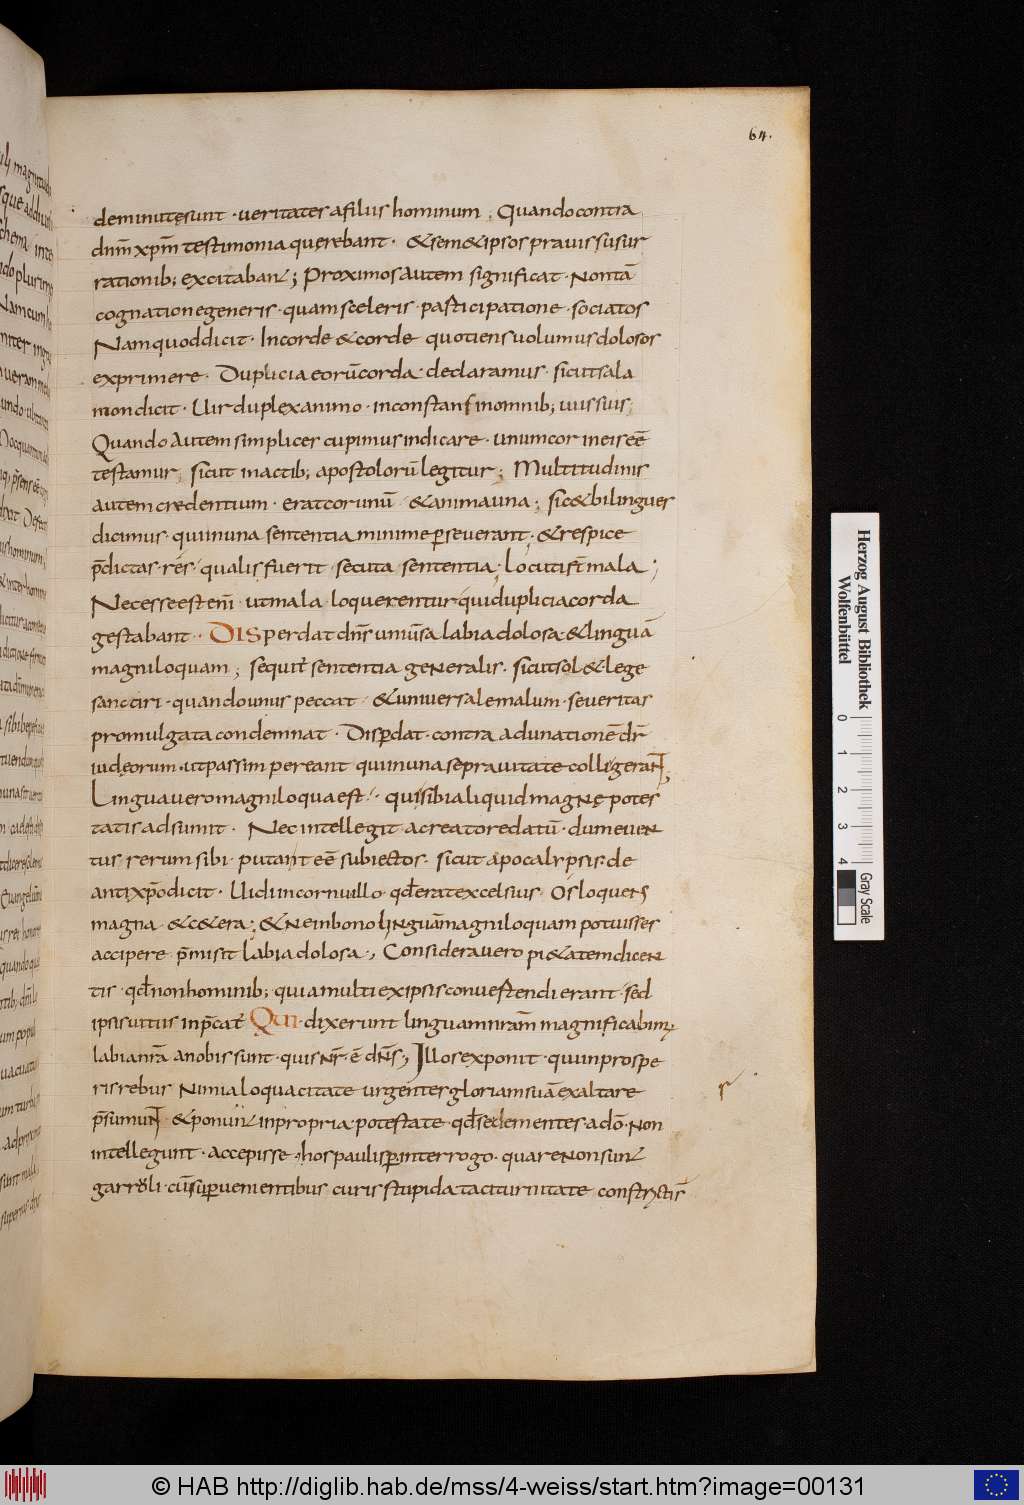 64.
deminutę sunt · ueritates a filiis hominum ; Quando contra
dn̄m xp̄m testimonia querebant · & sem&ipsos prauis susur
rationib; excitaban̄t ; Proximos autem significat · Non tā
cognatione generis · quam sceleris · participatione · sociatos
Nam quod dicit · In corde & corde quotiens uolumus dolosos
exprimere · Duplicia eorū corda · declaramus · sicut sala
mon dicit · Uir duplex animo · inconstans in omnib; uiis suis ;
Quando autem simplices cupimus indicare · unum cor in eis eē
testamur ; sicut in actib; apostolorū legitur ; Multitudinis
autem credentium · erat cor unū · & anima una ; sic & bilingues
dicimus · qui in una sententia minime p̱seuerant · & respice
p̄dictas · res · qualis fuerit · secuta sententia · Locuti sт̄ mala ;
Necesse est enī · ut mala loquerentur qui duplicia corda
gestabant · · Disperdat dn̄s uniūsa labia dolosa · & linguā
magniloquam ; sequit̄ sententia generalis · sicut sol& lege
sanctiri · quando unus peccat · & uniuersale malum · seueritas
promulgata condemnat · Disp̱dat · contra adunationē dr̄
iudęorum · ut passim pereant qui in una se prauitate colligerant ;
Lingua uero magniloqua est · · qui sibi aliquid magnę potes
tatis adsumit · Nec intellegit a creatore datū · dum euen
tus rerum sibi · putant eē subiectos · sicut apocalypsis · de
antixp̄o dicit · Uidi in cornu illo · qđ erat excelsius · Os loquens
magna · & c&era ; & ne in bono linguā magniloquam potuisses
accipere p̄misit labia dolosa ., Considera uero pi&atem dicen
tis · qđ non hominib; quia multi ex ipsis conuertendi erant · sed
ipsis uitiis inp̄cat̄ Qui · dixerunt linguam nr̄am magnificabim;
labia nr̄a a nobis sunt · quis nr̄ · ē dn̄s ; Illos exponit · qui in prospe
ris rebus nimia loquacitate urgenter gloriam suā exaltare
p̄sumunt · & ponunt in propria potestate qđ se dementes · a dō · non
intellegunt · accepisse · hos paulisp̱ interrogo · quare non sunt
garruli · cū superuenientibus curis stupida taciturnitate constrictis
Herzog August Bibliothek
Wolfenbüttel
0 1 2 3 4
Gray Scale
© HAB http://diglib.hab.de/mss/4-weiss/start.htm?image=00131